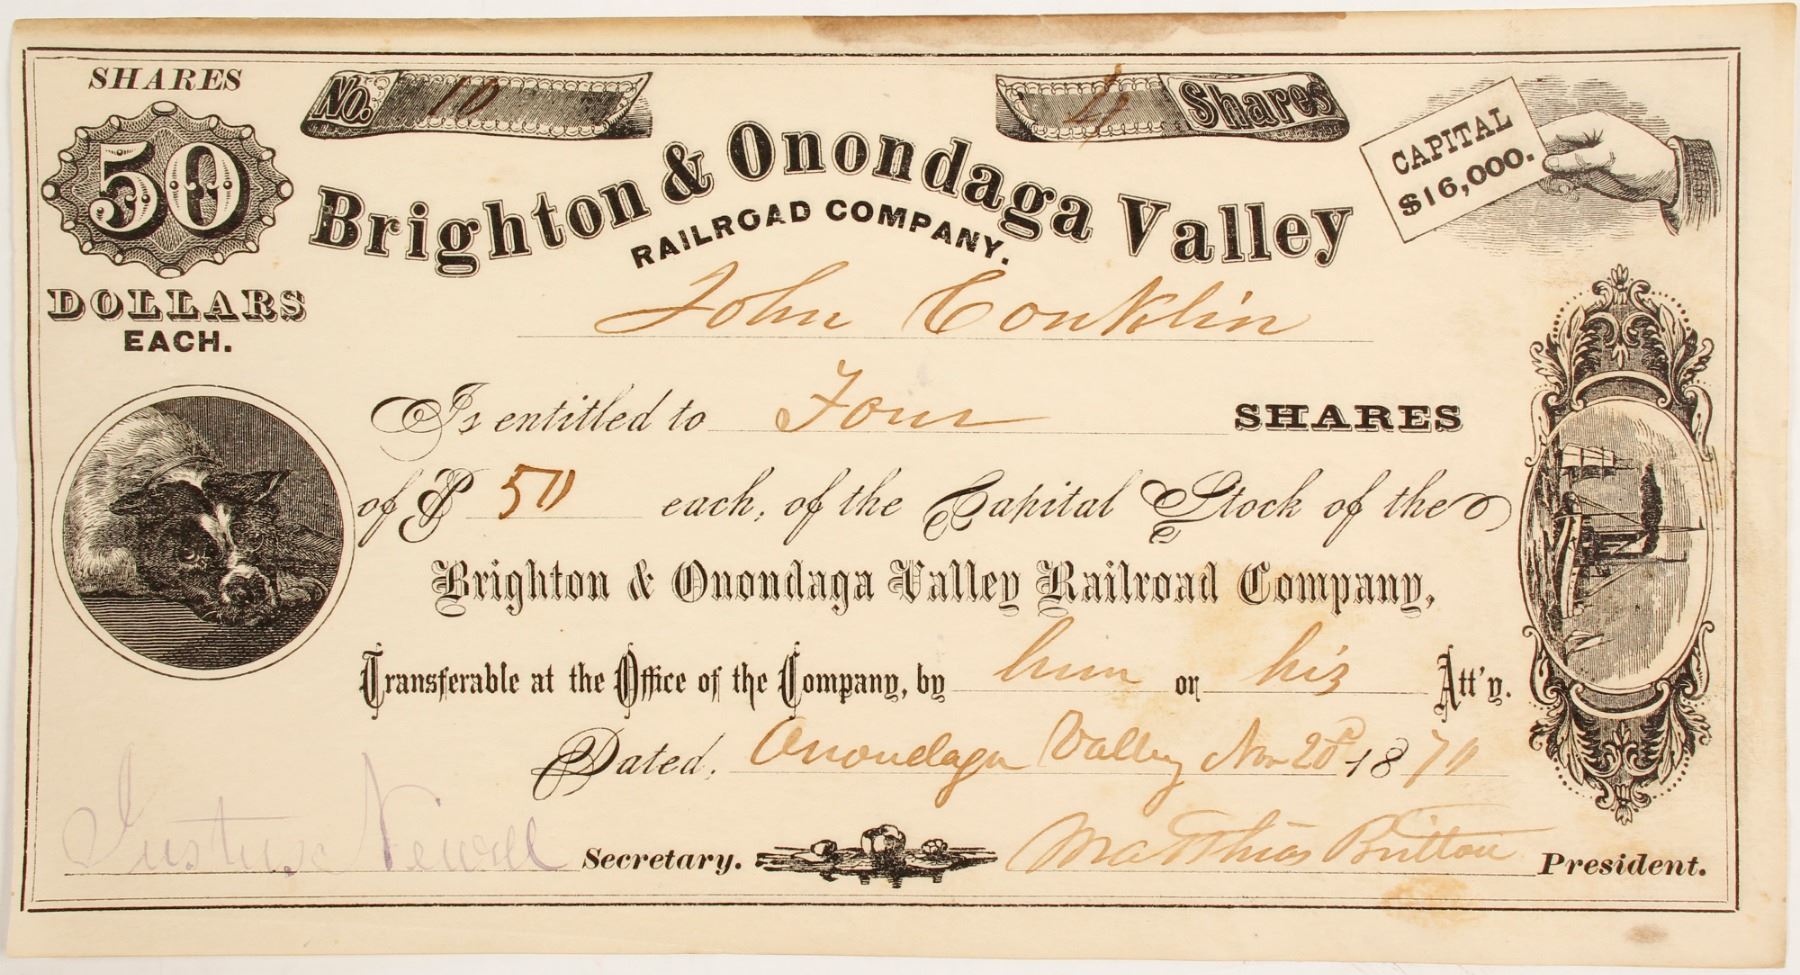 SHARES
50
DOLLARS
EACH.
No. 10
4 Shares
CAPITAL
$16,000.
Brighton & Onondaga Valley
RAILROAD COMPANY.
John Conklin
Is entitled to Four SHARES
of $ 50 each, of the Capital Stock of the
Brighton & Onondaga Valley Railroad Company,
Transferable at the Office of the Company, by him or his Att'y.
Dated, Onondaga Valley Nov 28 1870
Justus Newell Secretary.
Matthias Britton President.